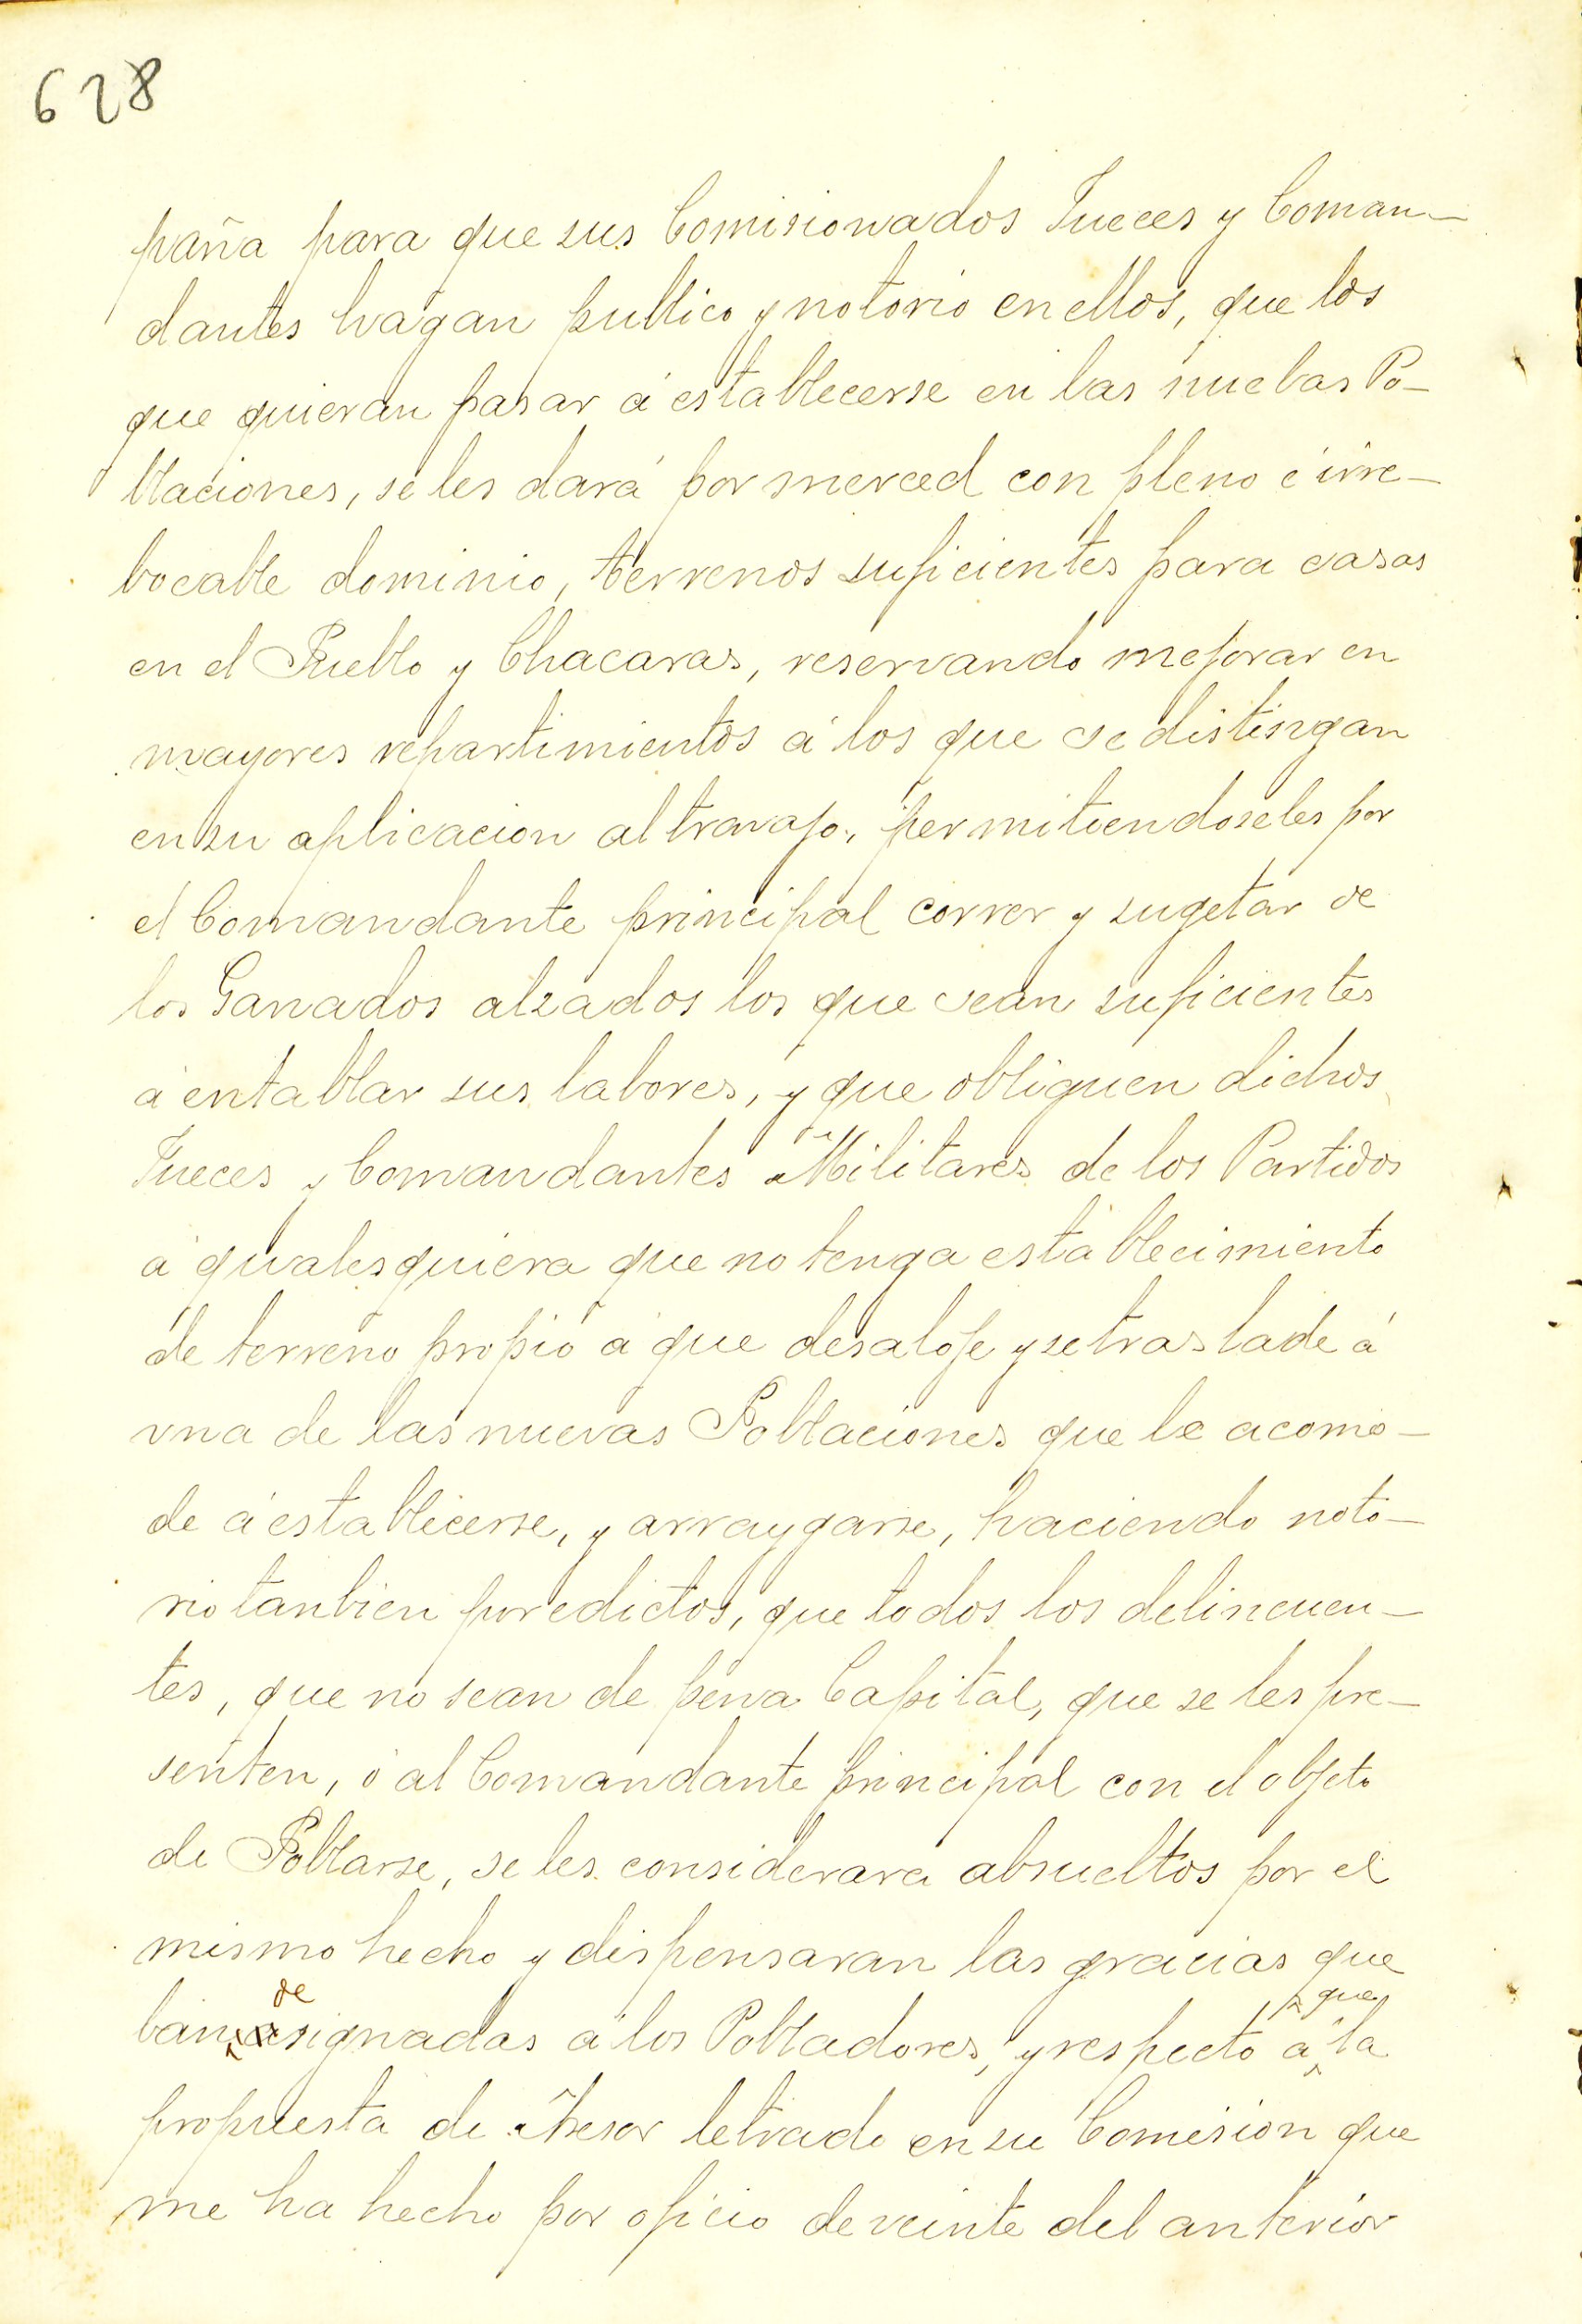 628
paña para que sus Comisionados Jueces y Coman-
dantes hagan publico y notorio en ellos, que los
que quieran pasar á establecerse en las nuebas Po-
blaciones, se les dará por merced con pleno é irre-
bocable dominio, terrenos suficientes para casas
en el Pueblo y Chacaras, reservando mejorar en
mayores repartimientos á los que se distingan
en su aplicacion al travajo, permitiendoseles por
el Comandante principal correr y sugetar de
los Ganados alzados los que sean suficientes
á entablar sus labores, y que obliguen dichos
Jueces y Comandantes Militares de los Partidos
á qualesquiera que no tenga establecimiento
de terreno propio á que desaloje y se traslade á
una de las nuevas Poblaciones que le acomo-
de á establecerse, y arraygarse, haciendo noto-
rio tanbien por edictos, que todos los delincuen-
tes, que no sean de pena Capital, que se les pre-
senten, ó al Comandante principal con el objeto
de Poblarse, se les considerara absueltos por el
mismo hecho y dispensaran las gracias que
de que
ban asignadas á los Pobladores, y respecto á la
propuesta de Asesor letrado en su Comision que
me ha hecho por oficio de veinte del anterior